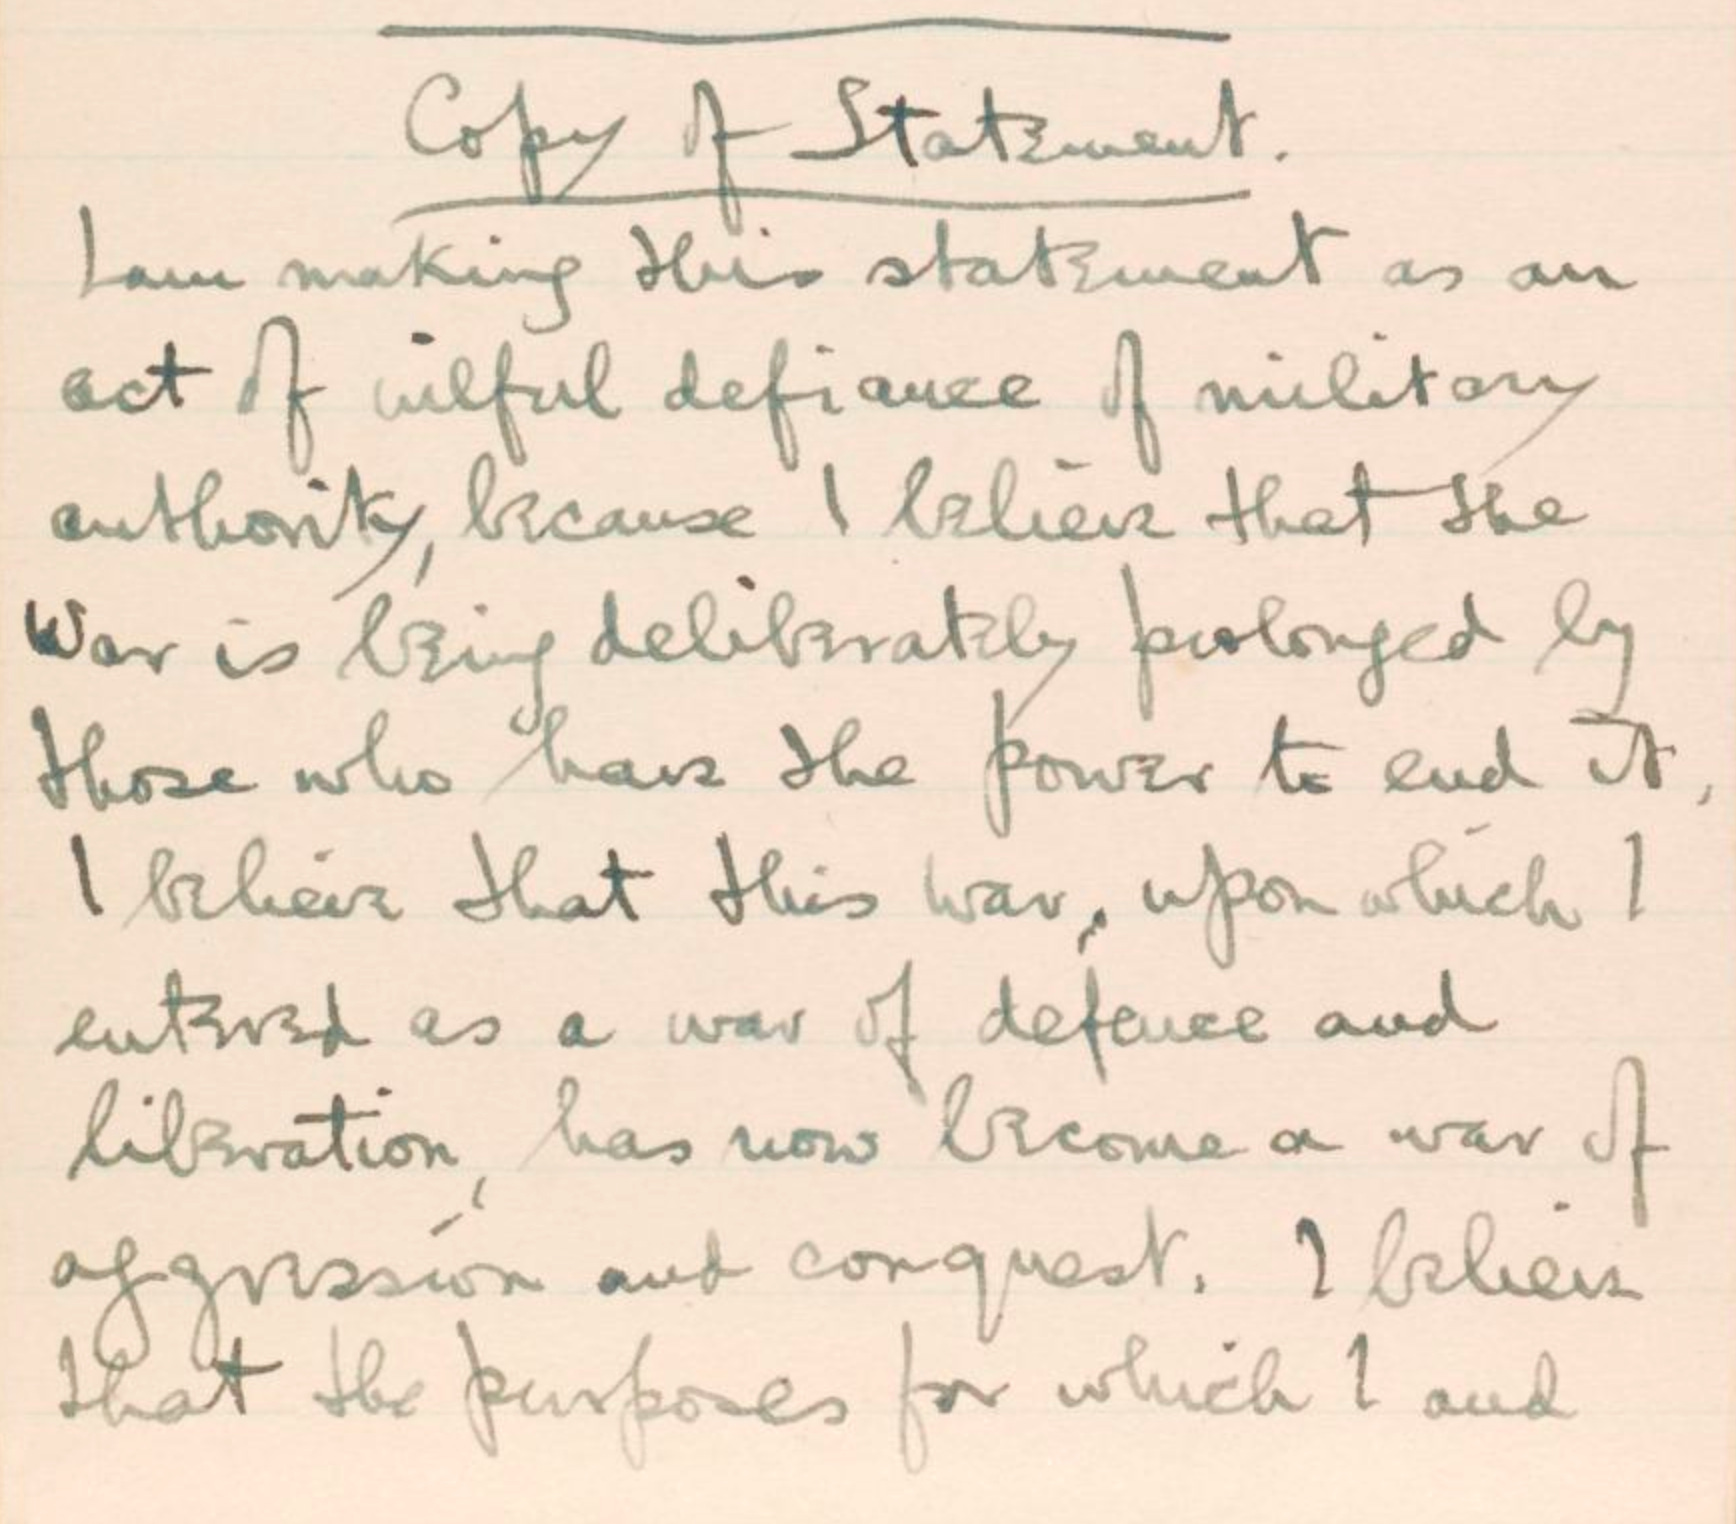 Copy of Statement.
I am making this statement as an
act of wilful defiance of military
authority, because I believe that the
War is being deliberately prolonged by
those who have the power to end it,
I believe that this war, upon which I
entered as a war of defence and
liberation, has now become a war of
aggression and conquest. I believe
that the purposes for which I and